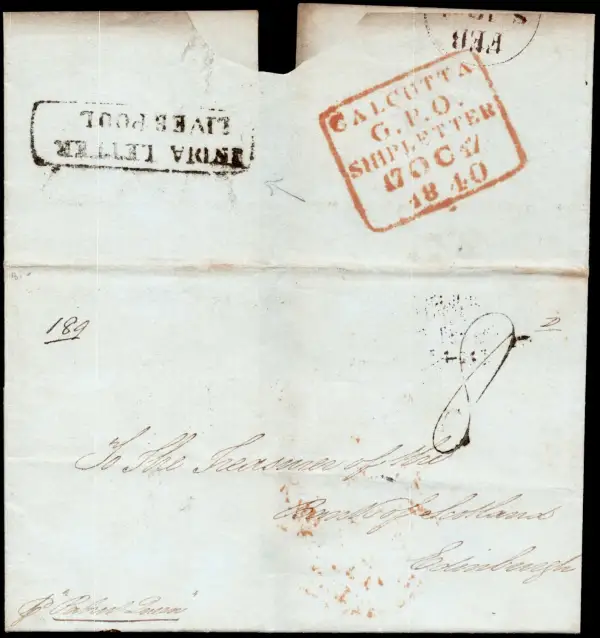 FEB
INDIA LETTER
LIVERPOOL
CALCUTTA
G.P.O.
SHIPLETTER
17 OC 17
1840
189
2
8
To The Treasurer of the
Bank of Scotland
Edinburgh